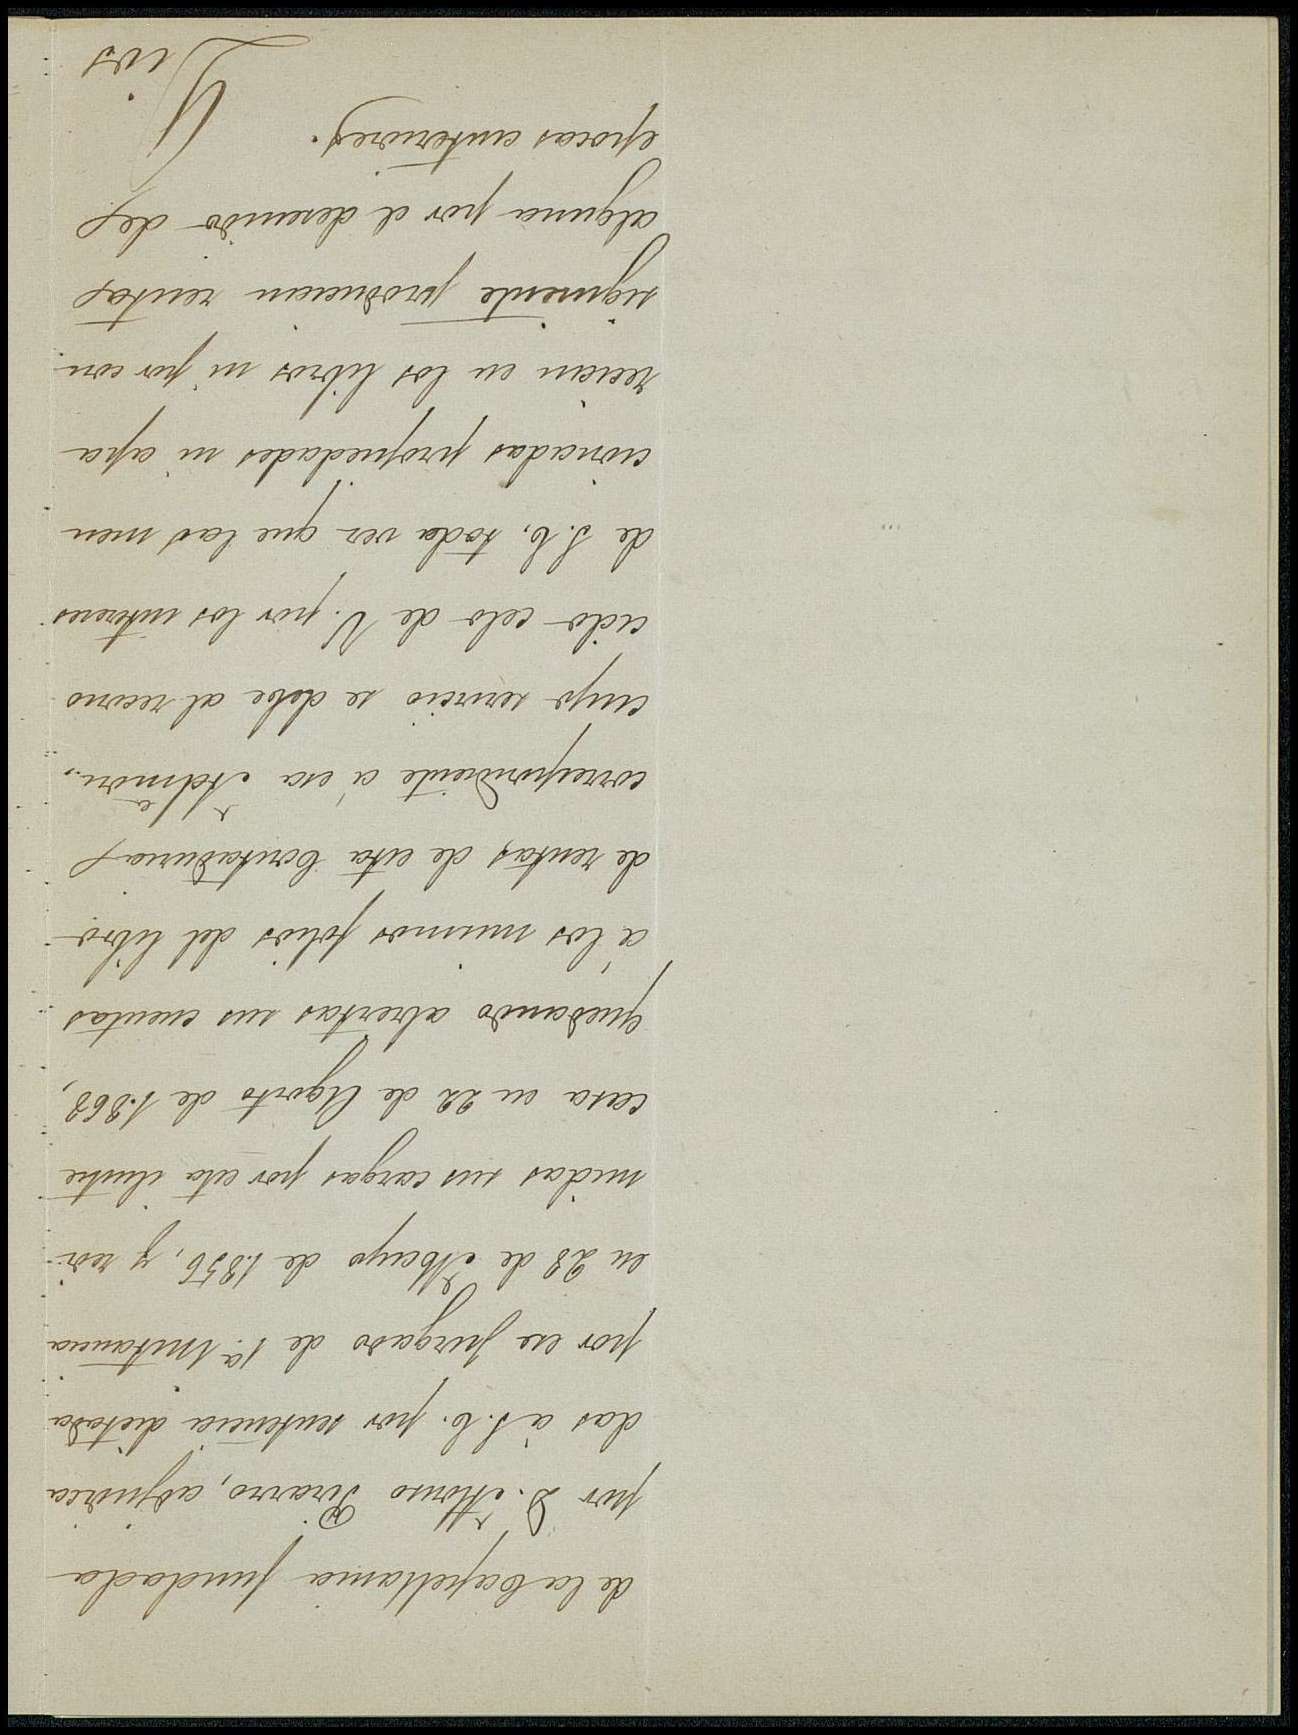 de la Capellania fundada
por D. Alonso Pizarro, adjudica
das á S. E. por sentencia dictada
por ese Juzgado de 1ª Instancia
en 28 de Mayo de 1.856, y redi-
midas sus cargas por esta ilustre
casa en 22 de Agosto de 1.868,
quedando abiertas sus cuentas
á los mismos folios del libro
de rentas de esta Contaduria
correspondiente á esa Admon.,
cuyo servicio se debe al recono
cido celo de V. por los intereses
de S. E. toda vez que las men
cionadas propiedades ni apa
recian en los libros ni por con
siguiente producian renta
alguna por el descuido de
epocas anteriores.
Dios